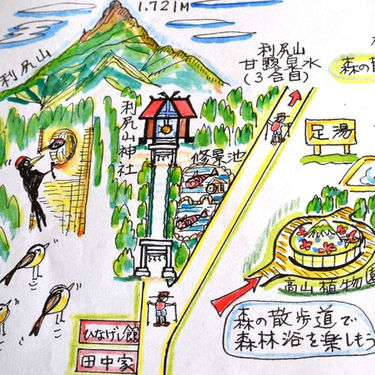 1.721M
利尻山
利尻山
甘露泉水
(3合目)
森の散
足湯
利尻山神社
修景池
高山植物園
ひなげし館
田中家
森の散歩道で
森林浴を楽しもう